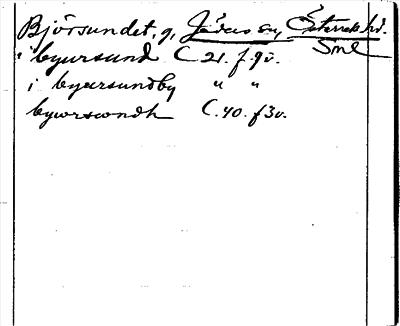 Björsundet, g, Jäders sn, Österrek. hd.
Sml
i byursund C 21. f. 9v.
i byursundby " "
bywrswndh C. 40. f 3v.